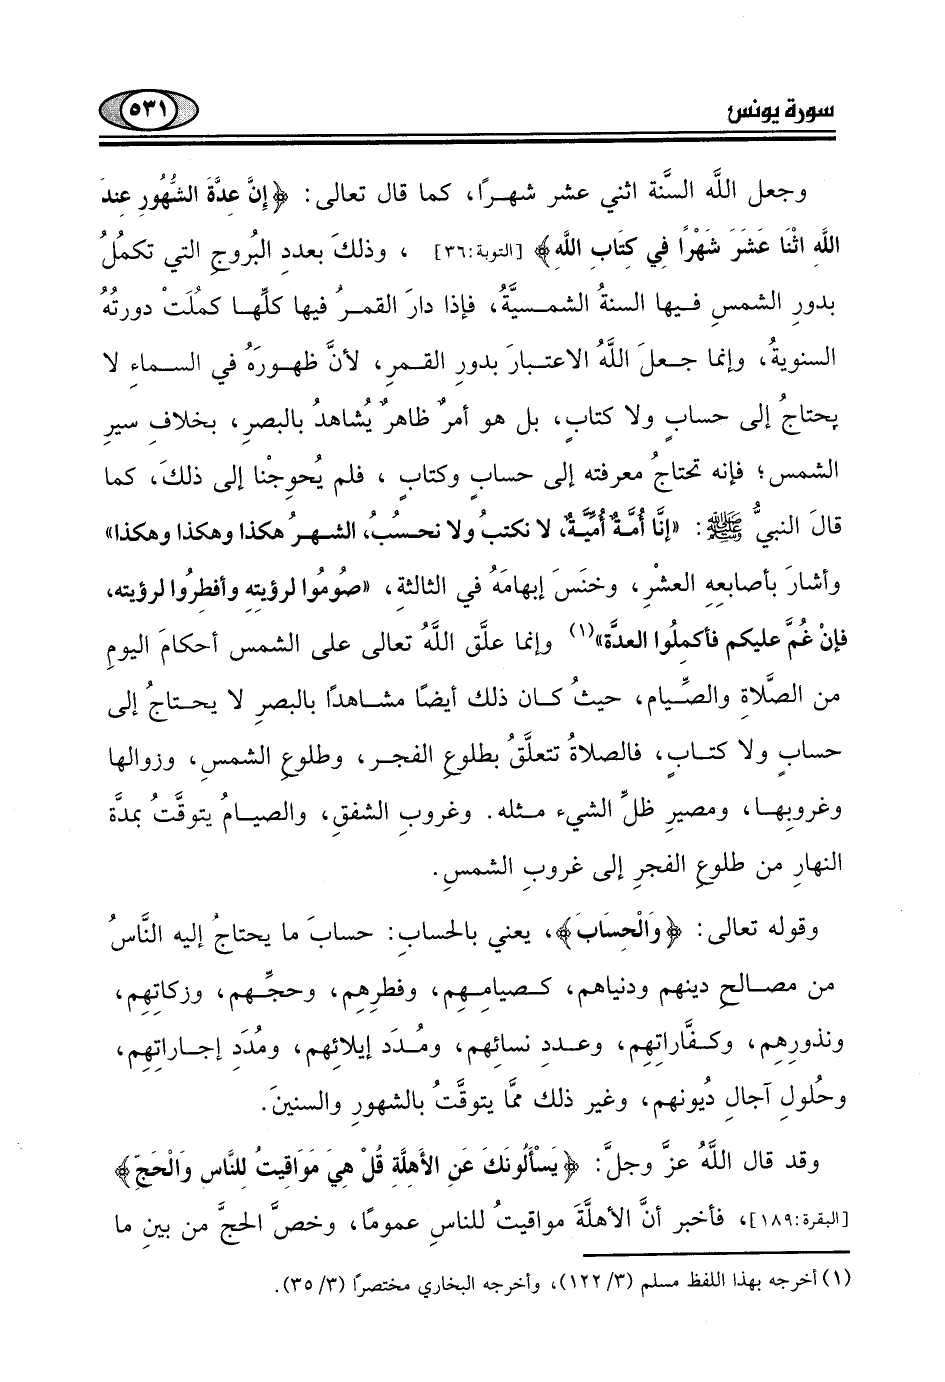 سورة يونس ٥٣١
وجعل اللَّه السنَّة اثني عشر شهـرًا، كما قال تعالى: ﴿إِنَّ عِدَّةَ الشُّهُورِ عِندَ
اللَّهِ اثْنَا عَشَرَ شَهْرًا فِي كِتَابِ اللَّهِ﴾ [التوبة:٣٦] ، وذلكَ بعددِ البُروجِ التي تكمُلُ
بدورِ الشمسِ فـيها السنةُ الشمـسيَّةُ، فإذا دارَ القمـرُ فيها كلِّهـا كملَتْ دورتُهُ
السنويةُ، وإنما جـعلَ اللَّهُ الاعتـبارَ بدورِ القمـرِ، لأنَّ ظهـورَهُ في السـماءِ لا
يحتاجُ إلى حسابٍ ولا كتابٍ، بل هو أمرٌ ظاهرٌ يُشاهدُ بالبصرِ، بخلافِ سيرِ
الشمس؛ فإنه تحتاجُ معرفته إلى حسابٍ وكتابٍ ، فلم يُحوِجْنا إلى ذلكَ، كما
قالَ النبيُّ ﷺ: «إنَّا أُمَّـةٌ أُمِّيَّـةٌ، لا نكتبُ ولا نحسُبُ، الشهـرُ هكذا وهكذا وهكذا»
وأشارَ بأصابعِهِ العشْرِ، وخنَسَ إبهامَهُ في الثالثة، «صُومُوا لرؤيتِهِ وأفطِرُوا لرؤيته،
فإنْ غُمَّ عليكم فأكمِلُوا العدَّة»(١) وإنما علَّق اللَّهُ تعالى على الشمس أحكامَ اليومِ
من الصَّلاةِ والصِّـيام، حيثُ كـان ذلك أيضًا مشـاهدًا بالبصرِ لا يحتـاجُ إلى
حسابٍ ولا كتـابٍ، فالصلاةُ تتعلَّقُ بطلوعِ الفجـر، وطلوعِ الشمسِ، وزوالها
وغروبِهـا، ومصيرِ ظلِّ الشيء مـثله. وغروبِ الشفقِ، والصيـامُ يتوقَّتُ بمدَّة
النهارِ من طلوعِ الفجرِ إلى غروبِ الشمسِ.
وقوله تعالى: ﴿وَالْحِسَابَ﴾، يعني بالحسابِ: حسابَ ما يحتاجُ إليه النَّاسُ
من مصـالحِ دينهم ودنياهم، كـصيامِـهِم، وفطرِهم، وحجِّـهم، وزكاتِهِم،
ونذورِهم، وكـفَّاراتِهِم، وعـددِ نسائهم، ومُـدَد إيلائِهم، ومُدَدِ إجـاراتِهِم،
وحُلولِ آجالِ دُيونهم، وغير ذلك ممَّا يتوقَّتُ بالشهورِ والسنينَ.
وقد قال اللَّهُ عزَّ وجلَّ: ﴿يَسْأَلُونَكَ عَنِ الأَهِلَّةِ قُلْ هِيَ مَوَاقِيتُ لِلنَّاسِ وَالْحَجِّ﴾
[البقرة:١٨٩]، فأخبر أنَّ الأهلَّةَ مواقيتُ للناسِ عمومًا، وخصَّ الحجَّ من بينِ ما
(١) أخرجه بهذا اللفظ مسلم (٣/ ١٢٢)، وأخرجه البخاري مختصرًا (٣/ ٣٥).